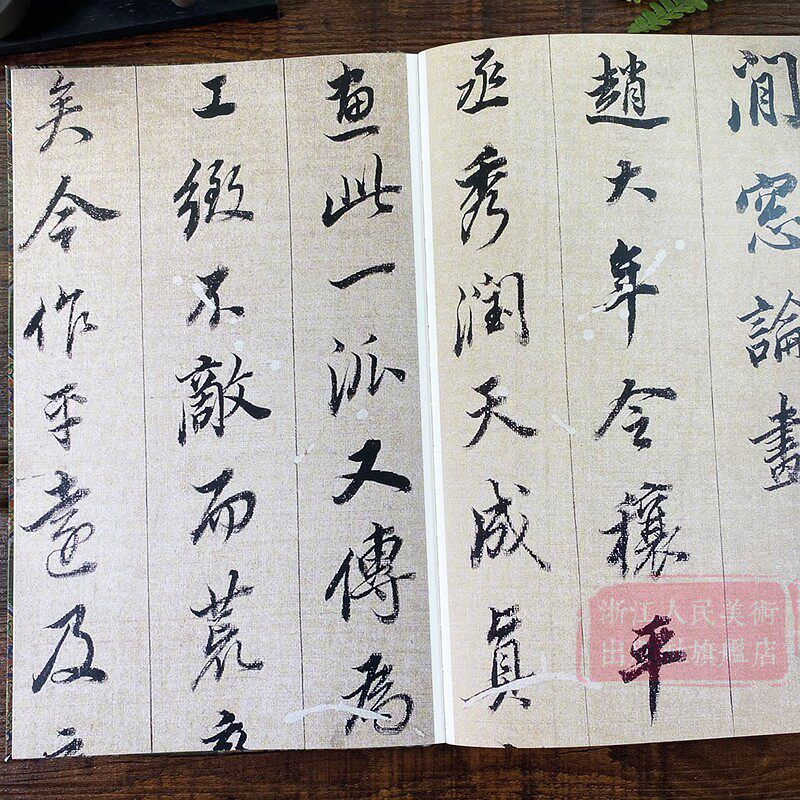 閒窓論畫
趙大年令穰平
丞秀潤天成真
畫此一派又傳為
工緻不敵而荒
矣今作平遠及
浙江人民美術
出旗艦店